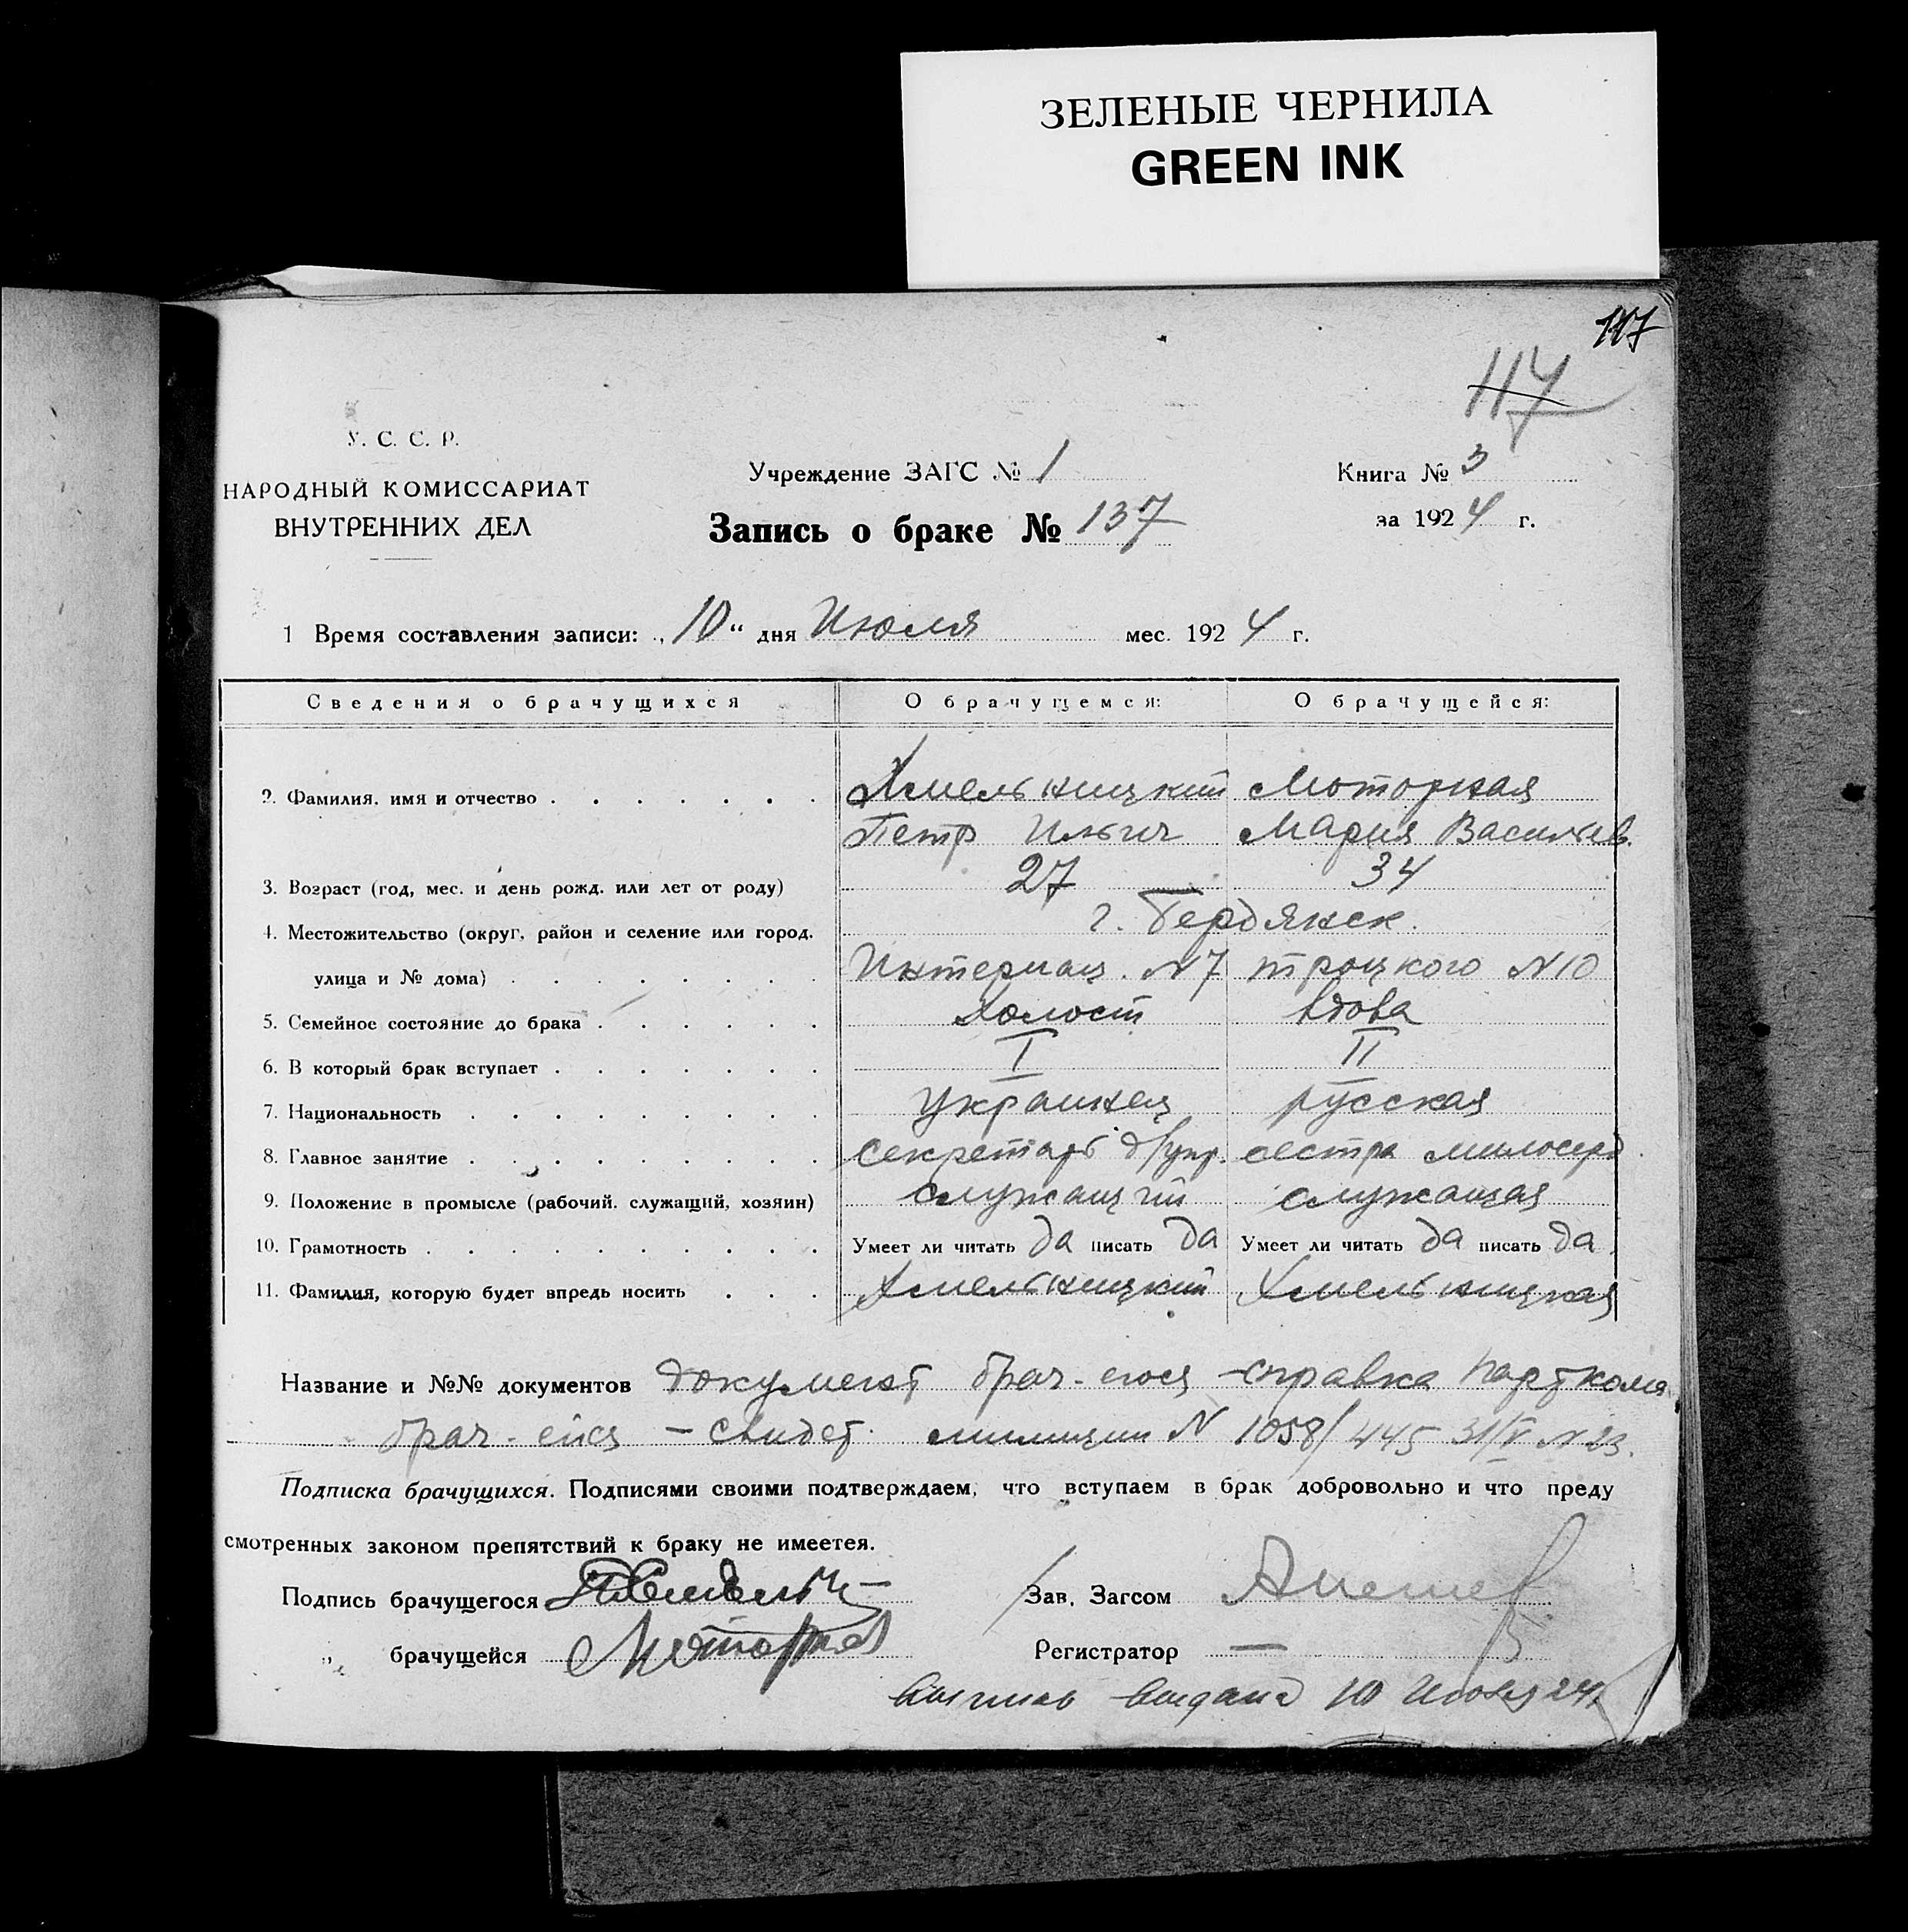 ЗЕЛЕНЫЕ ЧЕРНИЛА
GREEN INK
117
117
У. С. С. Р.
НАРОДНЫЙ КОМИССАРИАТ
ВНУТРЕННИХ ДЕЛ
Учреждение ЗАГС № 1
Запись о браке № 137
Книга № 3
за 1924 г.
1 Время составления записи: „10“ дня Июля мес. 1924 г.
Сведения о брачущихся О брачущемся: О брачущейся:
2. Фамилия, имя и отчество . . . . . . . Хмельницкий Моторная
Петр Ильич Мария Васильев.
3. Возраст (год, мес. и день рожд. или лет от роду) 27 34
4. Местожительство (округ, район и селение или город, г. Бердянск.
улица и № дома) . . . . . . . . Интернац. N 7 Троцкого N 10
5. Семейное состояние до брака . . . . . . Холост вдова
6. В который брак вступает . . . . . . . I II
7. Национальность . . . . . . . . . украинец русская
8. Главное занятие . . . . . . . . . секретарь сестра милосерд.
9. Положение в промысле (рабочий, служащий, хозяин) служащий служащая
10. Грамотность . . . . . . . . . . Умеет ли читать да писать да Умеет ли читать да писать да
11. Фамилия, которую будет впредь носить . . . Хмельницкий Хмельницкая
Название и №№ документов документ брач-егося - справка парткома
брач-ейся - свидет. милиции N 1058/445 31/V
Подписка брачущихся. Подписями своими подтверждаем, что вступаем в брак добровольно и что преду
смотренных законом препятствий к браку не имеетея.
Подпись брачущегося
Зав. Загсом
„ брачущейся Моторная
Регистратор —
выпись выдана 10 Июля 24